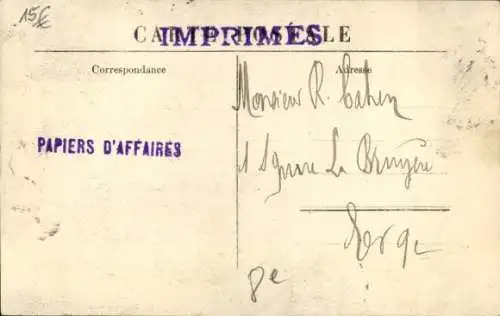 15€
CARTE POSTALE
IMPRIMÉS
Correspondance
Adresse
PAPIERS D'AFFAIRES
Monsieur R. Cahen
1 Square La Bruyère
9e